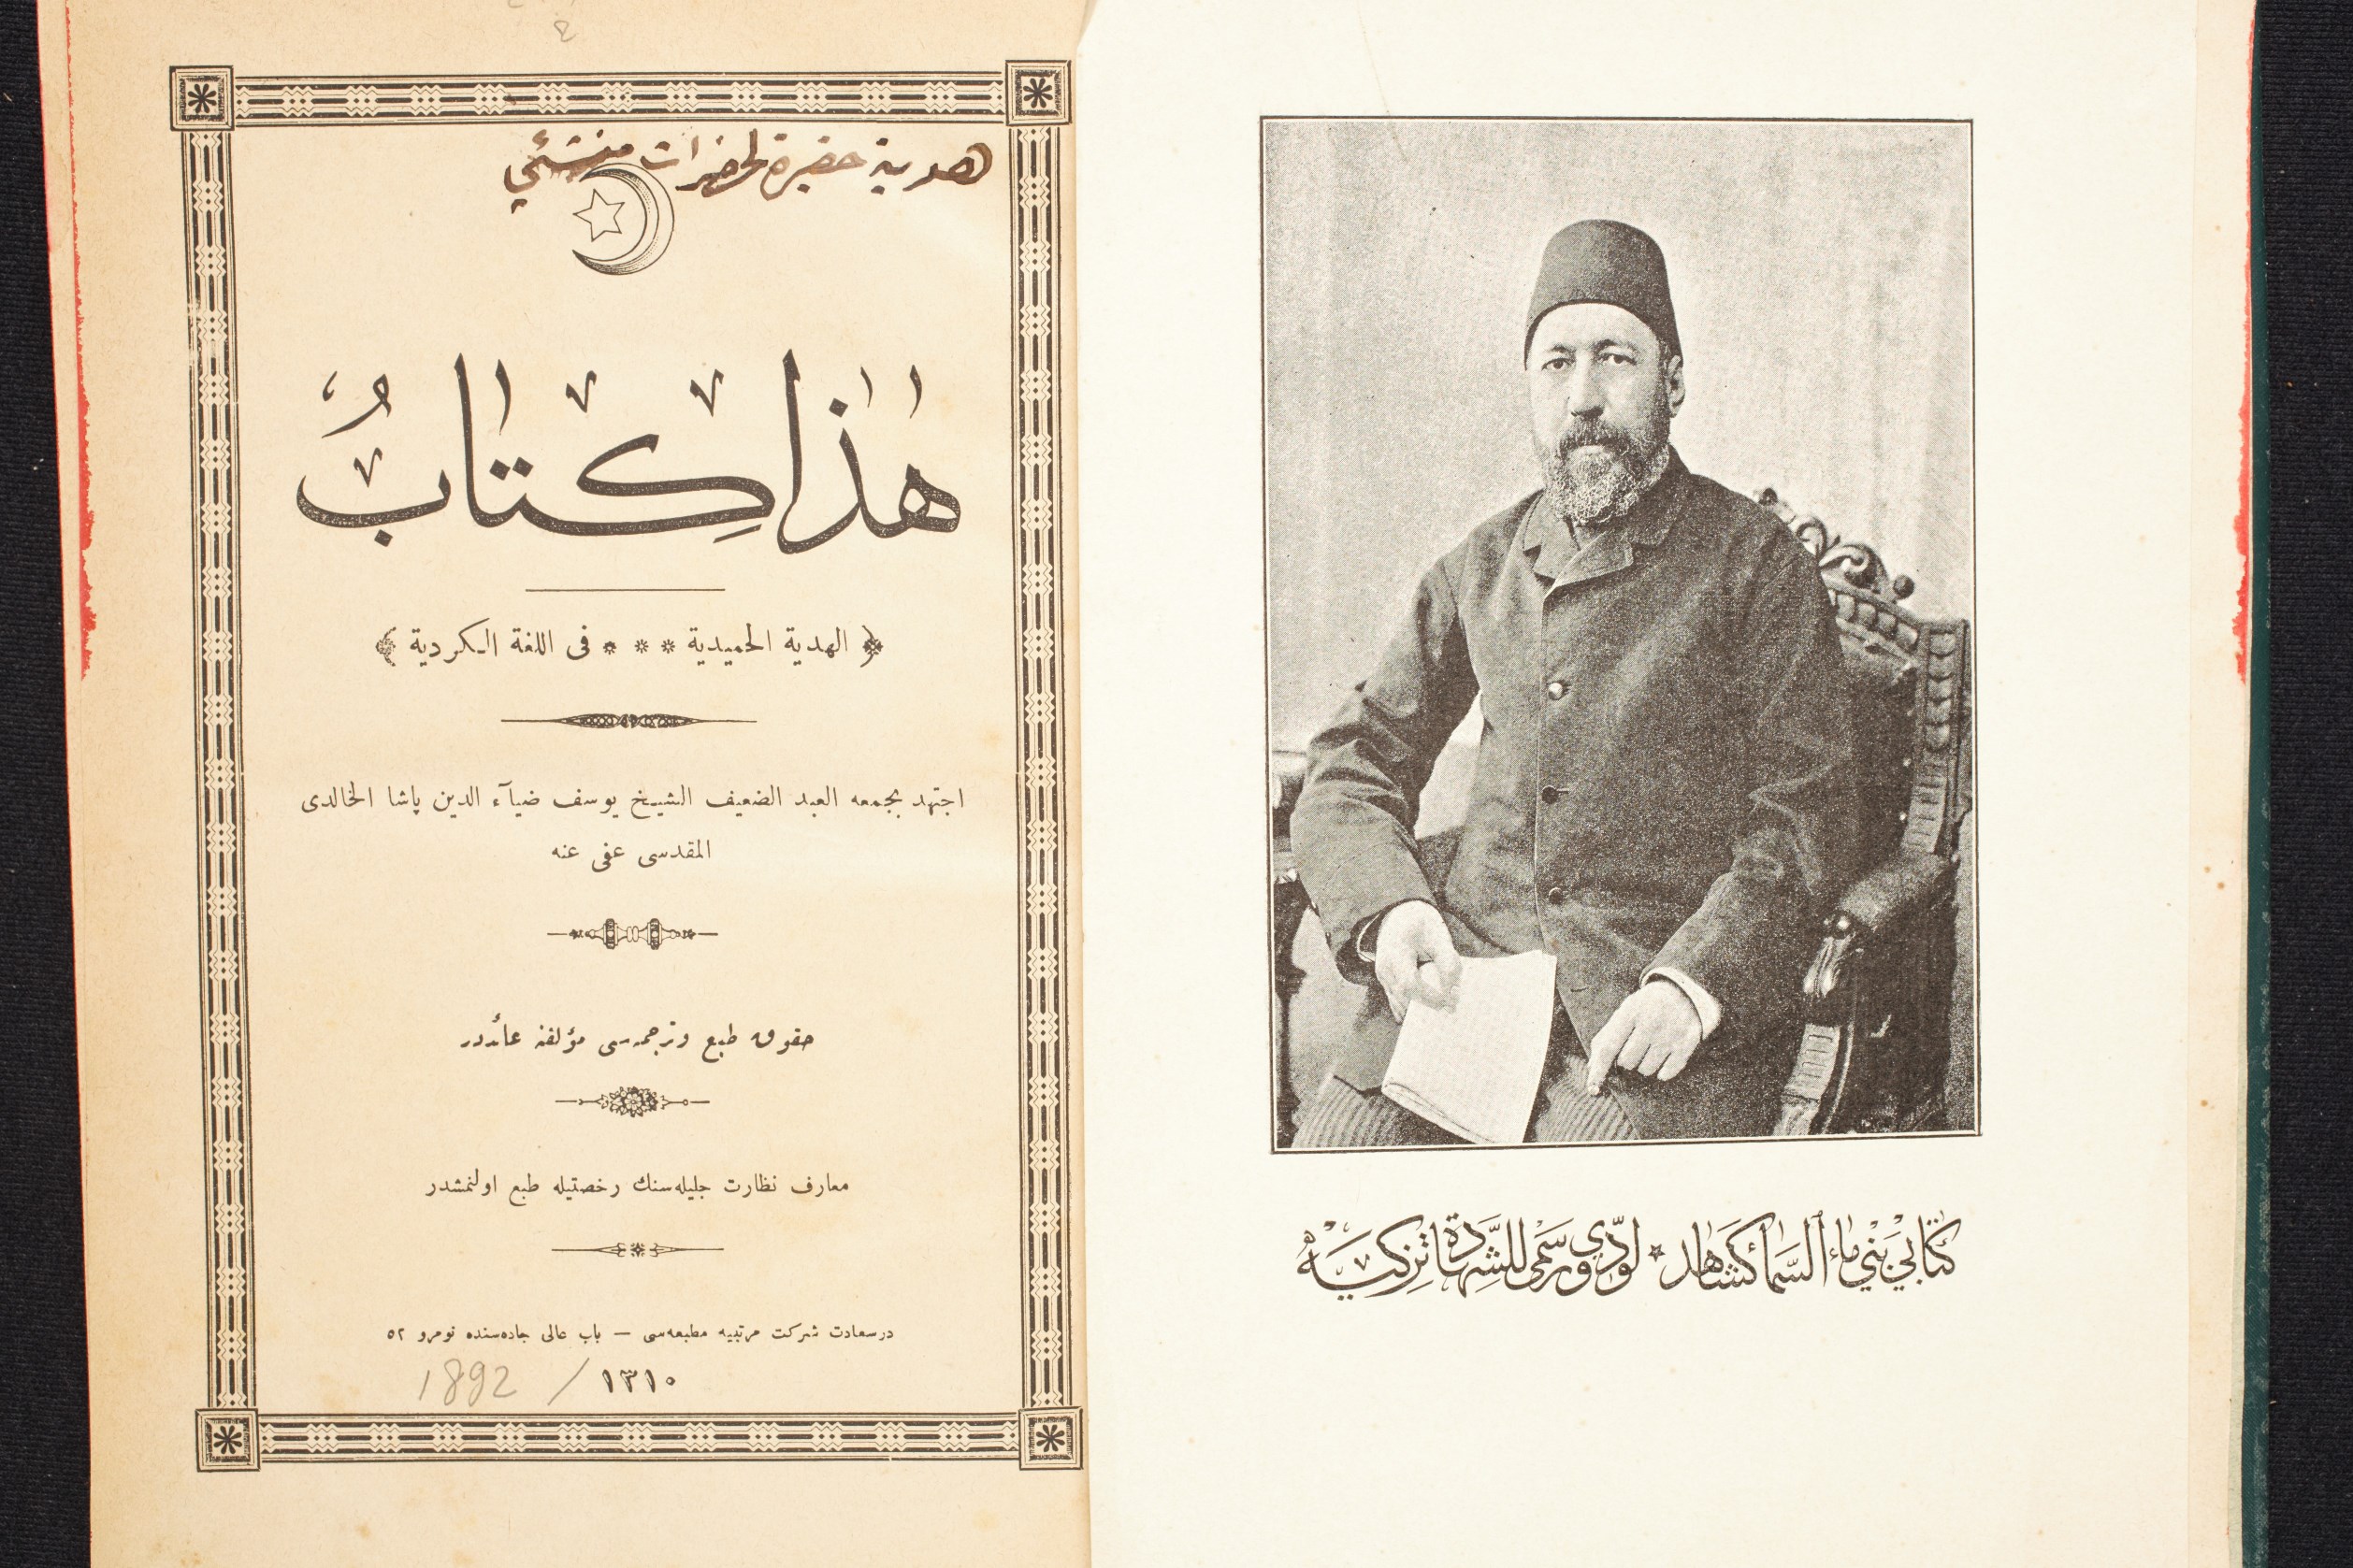 هدية حقيرة لحضرات منشئي
هٰذا كِتابٌ
الهدية الحميدية * * * فى اللغة الكردية
اجتهد بجمعه العبد الضعيف الشيخ يوسف ضيآء الدين پاشا الخالدى
المقدسى عفى عنه
حقوق طبع وترجمه‌سى مؤلفنه عائددر
معارف نظارت جليله‌سنك رخصتيله طبع اولنمشدر
درسعادت شركت مرتبيه مطبعه‌سى — باب عالى جاده‌سنده نومرو ٥٢
١٣١٠ / 1892
كتابي بني ماء السما كشاهد * لودي ورسمى للشهادة تزكيه